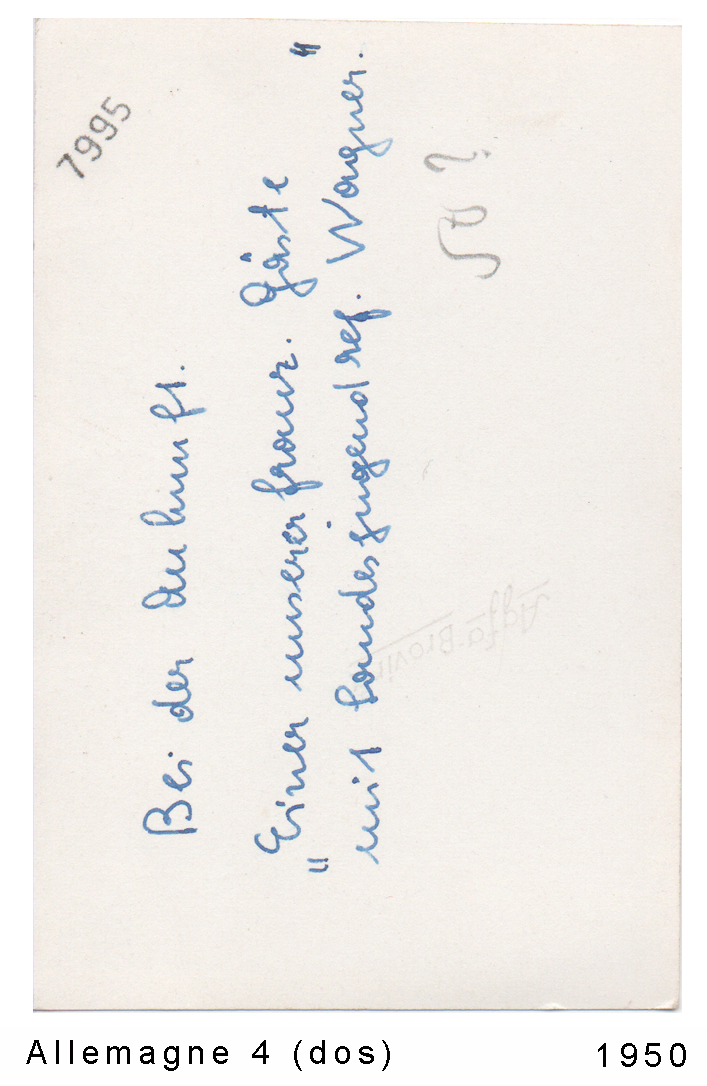 7995
Bei der Ankunft.
"Einer unserer franz. Gäste"
mit Landesjugendref. Wagner.
50?
Agfa-Brovira
Allemagne 4 (dos) 1950